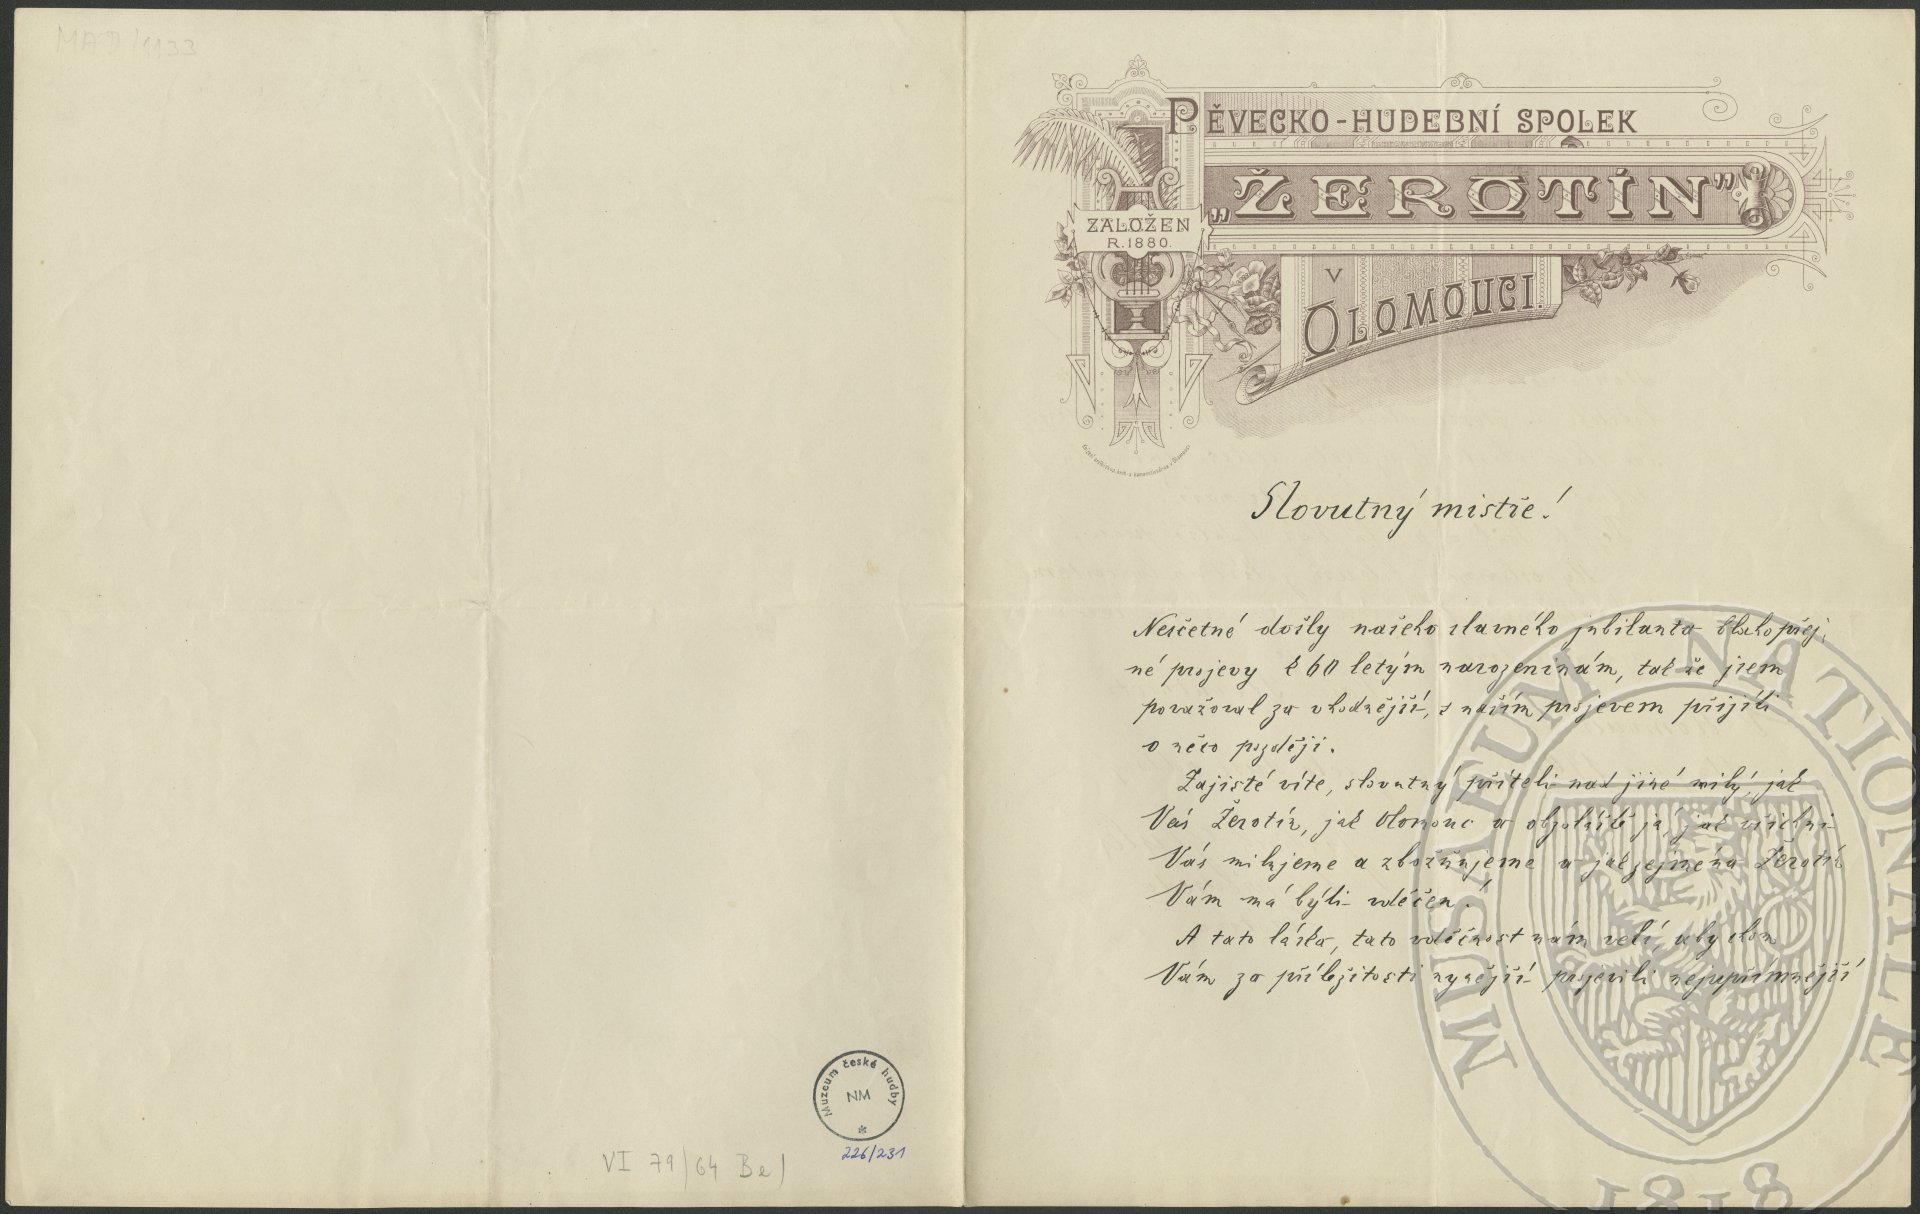 MAD/1133
Muzeum české hudby
NM
226/231
VI 79/64 Be)
PĚVECKO-HUDEBNÍ SPOLEK
„ŽEROTÍN”
ZALOŽEN
R. 1880.
V
OLOMOUCI.
Slovutný mistře!
Nesčetné došly našeho slavného jubilanta blahopřej-
né projevy k 60 letým narozeninám, tak že jsem
považoval za vhodnější, s naším projevem přijíti
o něco později.
Zajisté víte, slovutný příteli nad jiné milý, jak
Vás Žerotín, jak Olomouc a obzvláště já, jak všichni
Vás milujeme a zbožňujeme a jak zejména Žerotín
Vám má býti vděčen!
A tato láska, tato vděčnost nám velí, aby chom
Vám za příležitosti nynější projevili nejupřímnější
MUSAEUM NATIONALE
1818